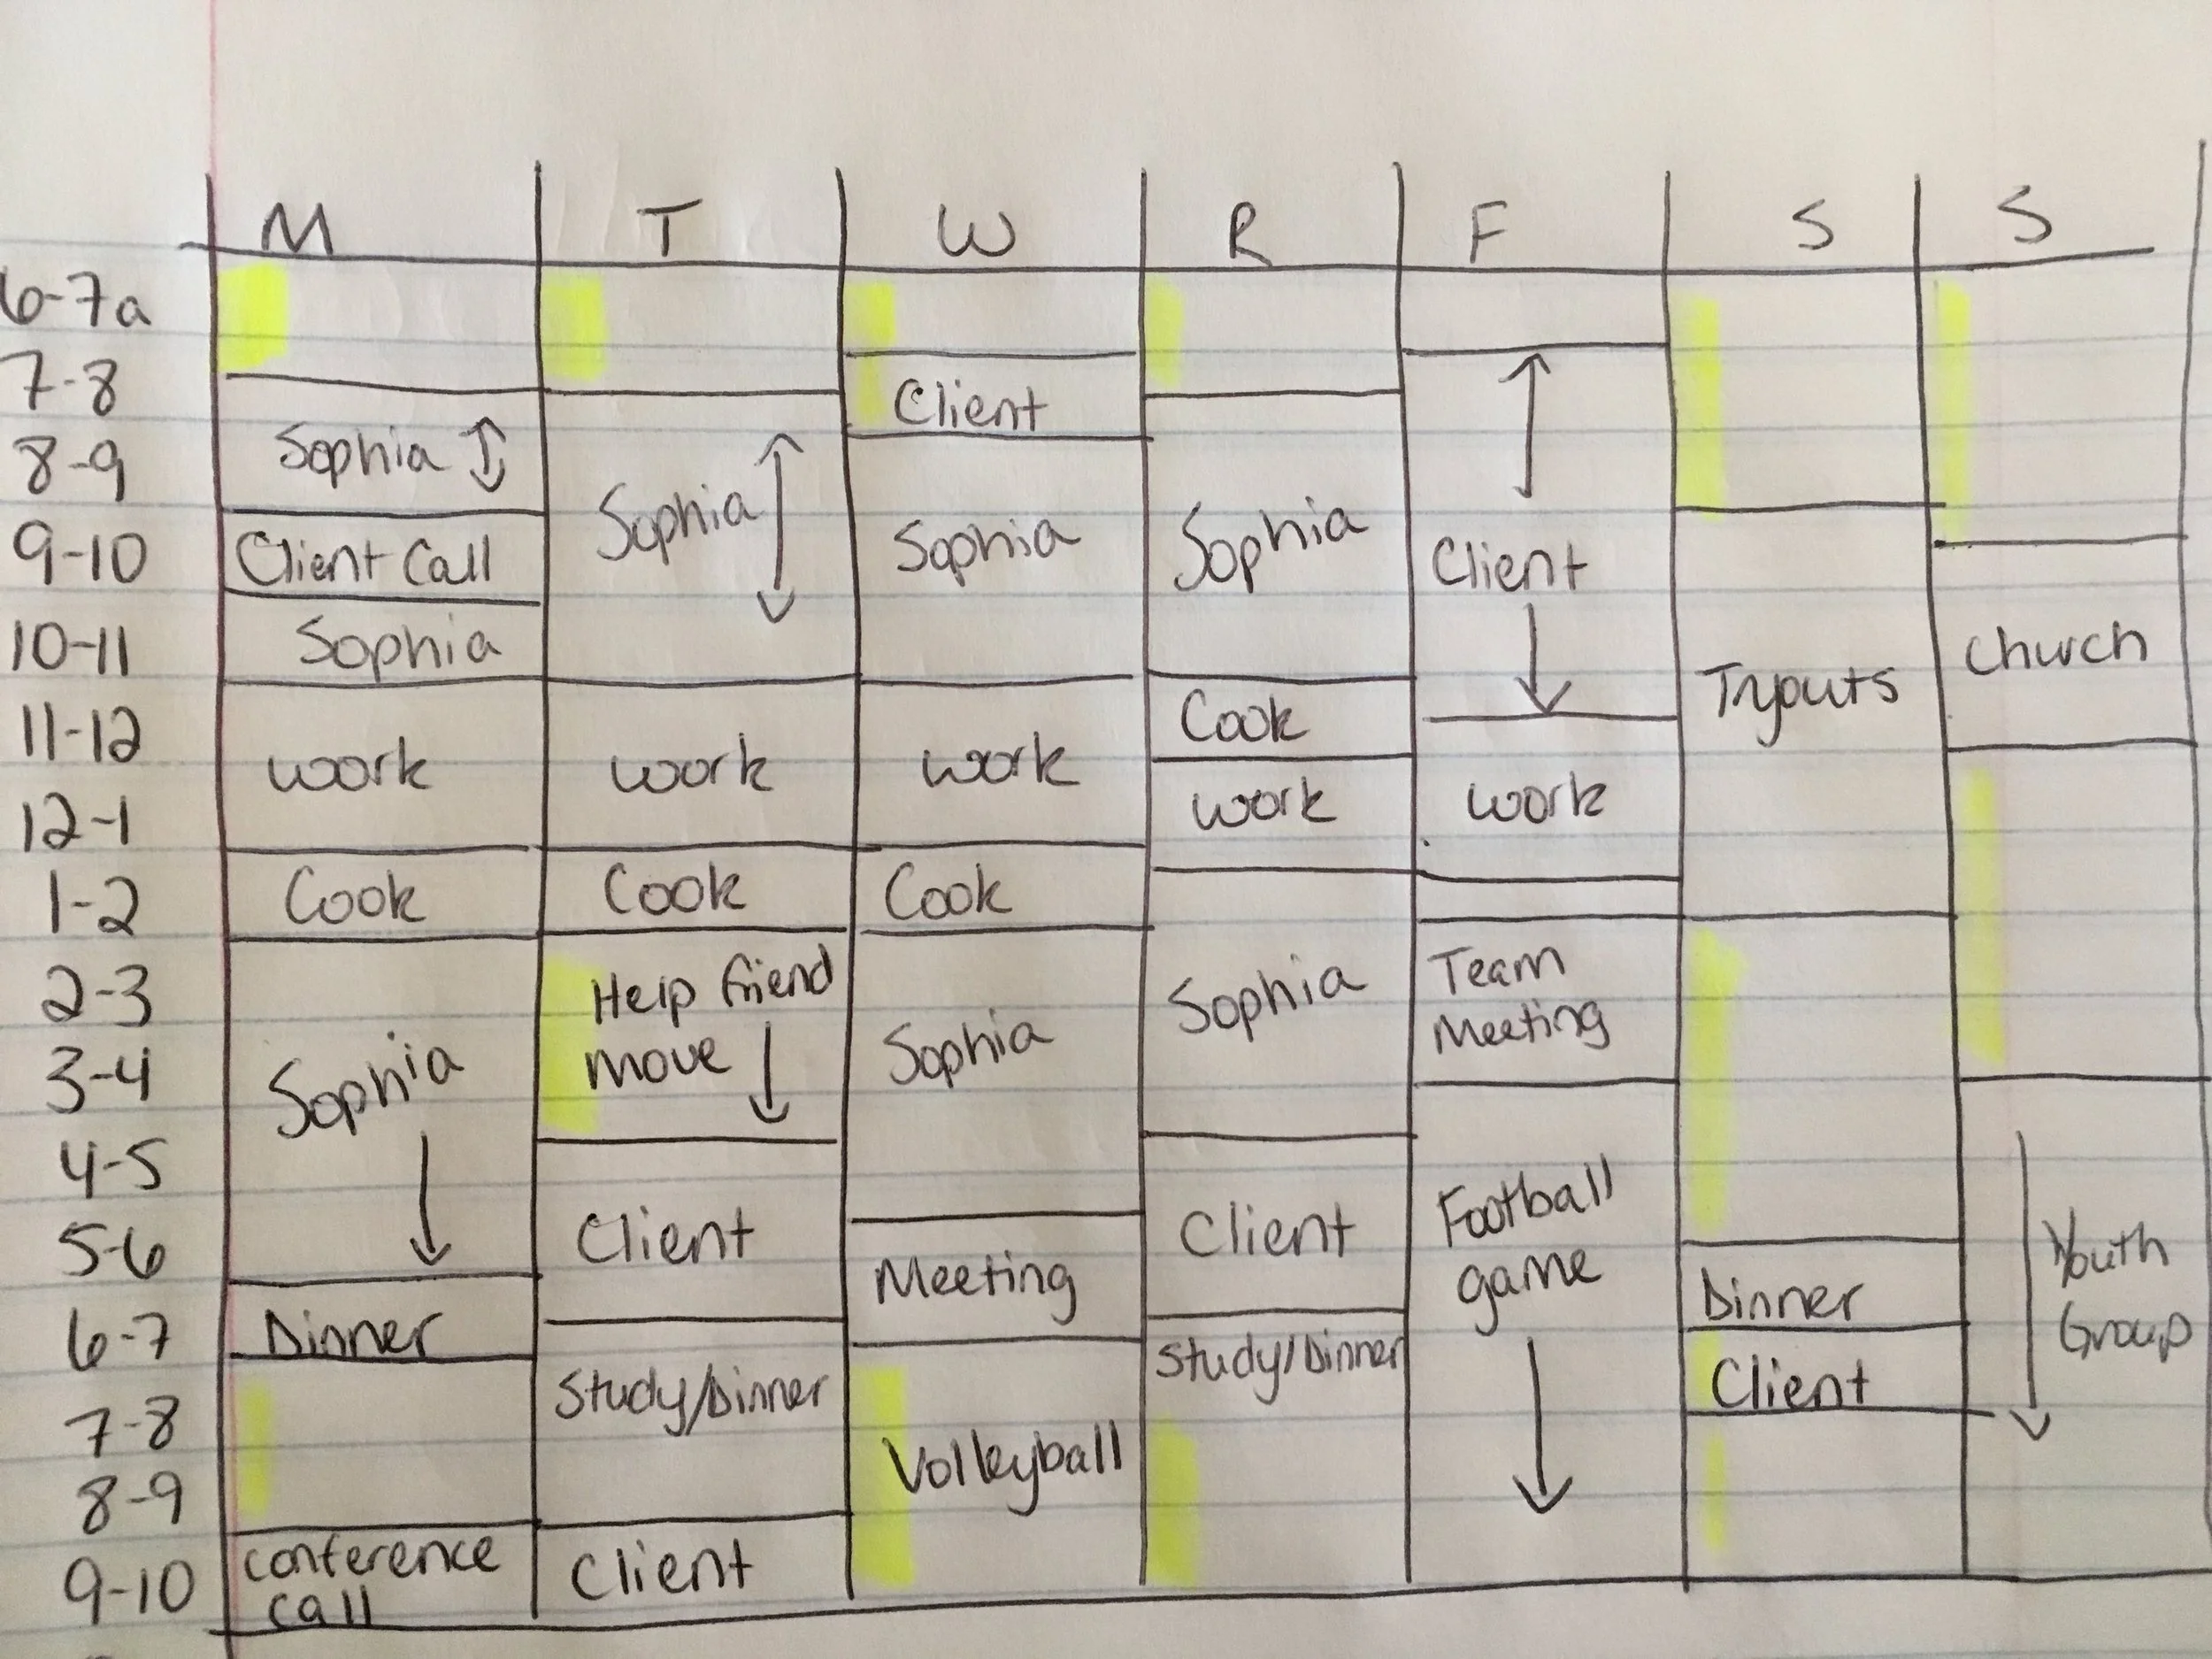 M T W R F S S
6-7a
7-8 Client
8-9 Sophia Sophia Sophia Sophia
9-10 Client Call Client
10-11 Sophia Tryouts Church
11-12 work work work Cook
12-1 work work
1-2 Cook Cook Cook
2-3 Help friend Sophia Team
3-4 Sophia move Sophia Meeting
4-5 Football
5-6 Client Meeting Client game Dinner Youth
6-7 Dinner Study/Dinner Client Group
7-8 Study/Dinner
8-9 Volleyball
9-10 Conference Client
Call